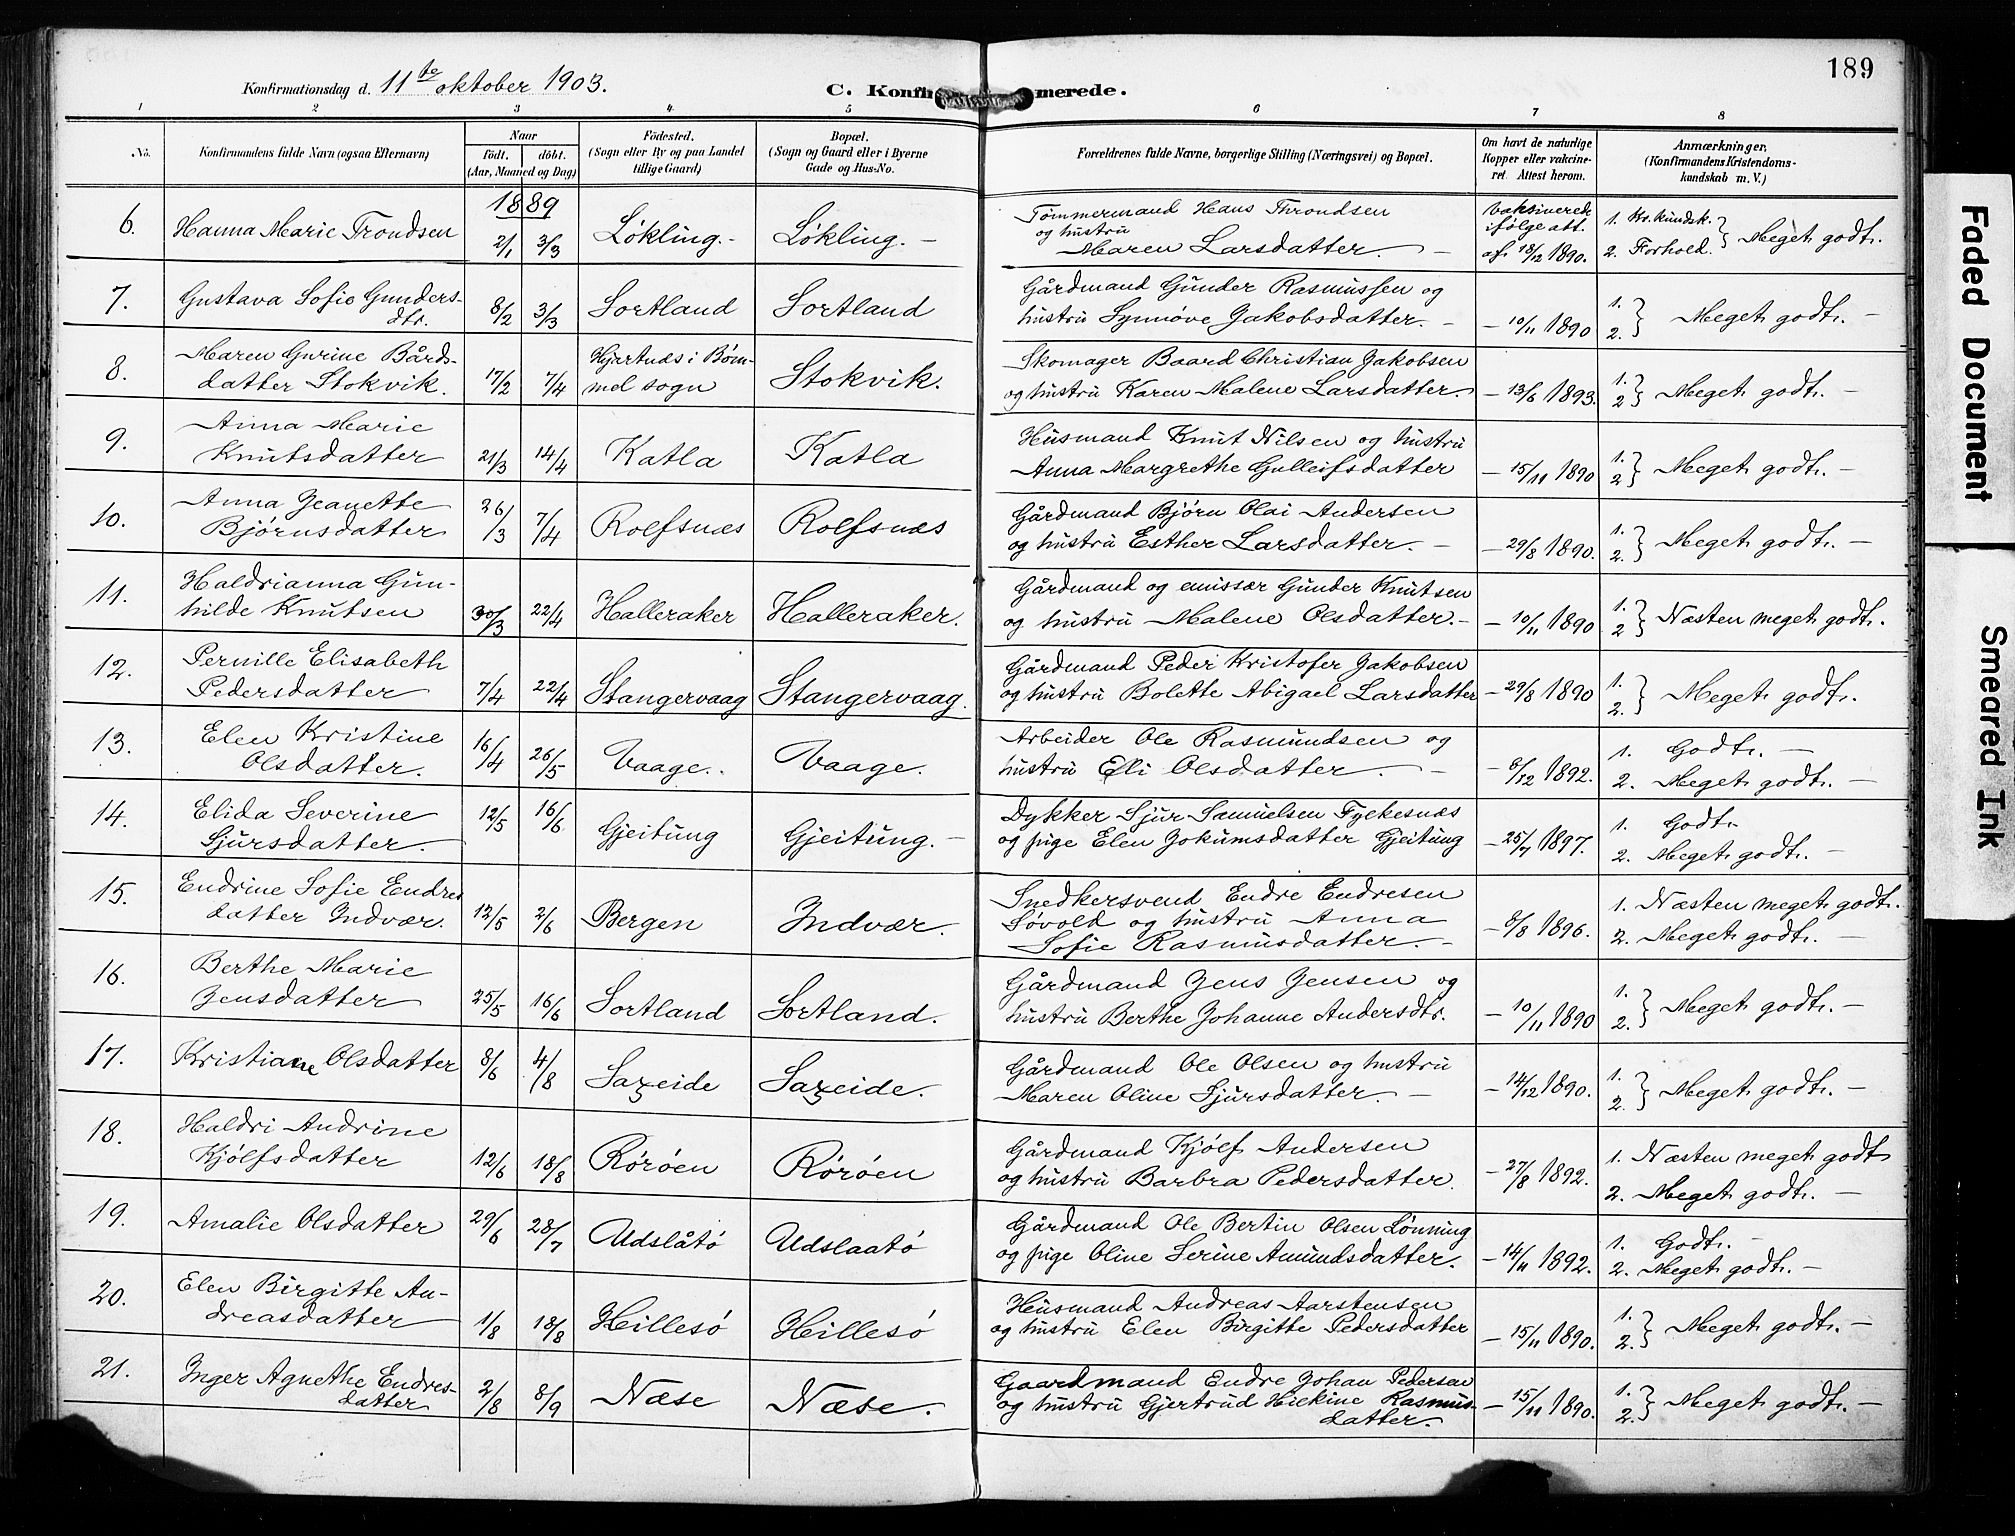 189
Konfirmationsdag d. 11te oktober 1903.
C. Konfirmerede.
1 2 3 4 5 6 7 8
No. Konfirmandens fulde Navn (ogsaa Efternavn) Naar födt. döbt. (Aar, Maaned og Dag) Födested. (Sogn eller By og paa Landet tillige Gaard) Bopæl. (Sogn og Gaard eller i Byerne Gade og Hus-No. Forældrenes fulde Navne, borgerlige Stilling (Næringsvei) og Bopæl. Om havt de naturlige Kopper eller vakcineret. Attest herom. Anmærkninger. (Konfirmandens Kristendomskundskab m. V.)
1889
6. Hanna Marie Trondsen 2/1 3/3 Løkling.- Løkling.- Tømmermand Hans Throndsen og hustru Maren Larsdatter.- Vaksinerede ifølge att. af 18/12 1890. 1. Kr. kundsk. 2. Forhold. } Meget godt.
7. Gustava Sofie Gundersdtr. 8/2 3/3 Sortland Sortland Gårdmand Gunder Rasmussen og hustru Synnøve Jakobsdatter.- - 10/11 1890 1. 2. } Meget godt.-
8. Maren Gurine Bårdsdatter Stokvik. 17/2 7/4 Hjartnæs i Bømmel sogn Stokvik. Skomager Baard Christian Jakobsen og hustru Karen Malene Larsdatter. - 13/6 1893. 1. 2 } Meget godt.-
9. Anna Marie Knutsdatter 21/3 14/4 Katla Katla Husmand Knut Nilsen og hustru Anna Margrethe Gulleifsdatter - 15/11 1890 1. 2 } Meget godt.-
10. Anna Jeanette Bjørnsdatter 26/3 7/4 Rolfsnæs Rolfsnæs Gårdmand Bjørn Olai Andersen og hustru Esther Larsdatter.- - 29/8 1890. 1. 2. } Meget godt.-
11. Haldrianna Gunhilde Knutsen 30/3 22/4 Halleraker Halleraker. Gårdmand og emissær Gunder Knutsen og hustru Malene Olsdatter.- - 10/11 1890 1. 2 } Næsten meget godt.
12. Pernille Elisabeth Pedersdatter 7/4 22/4 Stangervaag Stangervaag. Gårdmand Peder Kristofer Jakobsen og hustru Bolette Abigael Larsdatter - 29/8 1890 1. 2. } Meget godt.
13. Elen Kristine Olsdatter. 16/4 26/5 Vaage. Vaage. Arbeider Ole Rasmundsen og hustru Eli Olsdatter.- - 8/12 1892. 1. Godt.- 2. Meget godt.-
14. Elida Severine Sjursdatter. 12/5 16/6 Gjeitung Gjeitung.- Dykker Sjur Samuelsen Fykesnæs og pige Elen Jokumsdatter Gjeitung - 25/7 1897. 1. Godt. 2. Meget godt.-
15. Endrine Sofie Endresdatter Indvær. 12/5 2/6 Bergen Indvær. Snedkersvend Endre Endresen Løvold og hustru Anna Sofie Rasmusdatter.- - 8/8 1896. 1. Næsten meget godt. 2. Meget godt.-
16. Berthe Marie Jensdatter 25/5 16/6 Sortland Sortland. Gårdmand Jens Jensen og hustru Berthe Johanne Andersdtr. - 10/11 1890 1. 2. } Meget godt.-
17. Kristiane Olsdatter 8/6 4/8 Sazeide Sazeide. Gårdmand Ole Olsen og hustru Maren Oline Sjursdatter.- - 14/12 1890. 1. 2. } Meget godt.-
18. Haldri Andrine Kjølfsdatter 12/6 18/8 Rørøen Rørøen Gårdmand Kjølf Andersen og hustru Barbra Pedersdatter. - 27/8 1892. 1. Næsten meget godt 2. Meget godt.-
19. Amalie Olsdatter 29/6 28/7 Udslåtø Udslaatø Gårdmand Ole Bertin Olsen Lønning og pige Oline Serine Amundsdatter. - 14/11 1892. 1. Godt.- 2. Meget godt.-
20. Elen Birgitte Andreasdatter 1/8 18/8 Hillesø Hillesø Husmand Andreas Aarstensen og hustru Elen Birgitte Pedersdatter - 15/11 1890. 1. 2. } Meget godt.-
21. Inger Agnethe Endresdatter 2/8 8/9 Næse Næse. Gaardmand Endre Johan Pedersen og hustru Gjertrud Hickine Rasmusdatter. - 15/11 1890. 1. 2. } Meget godt.-
Faded Document
Smeared Ink